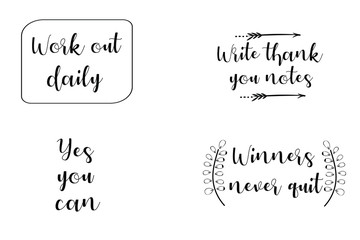 Work out
daily
Write thank
you notes
Yes
you
can
Winners
never quit